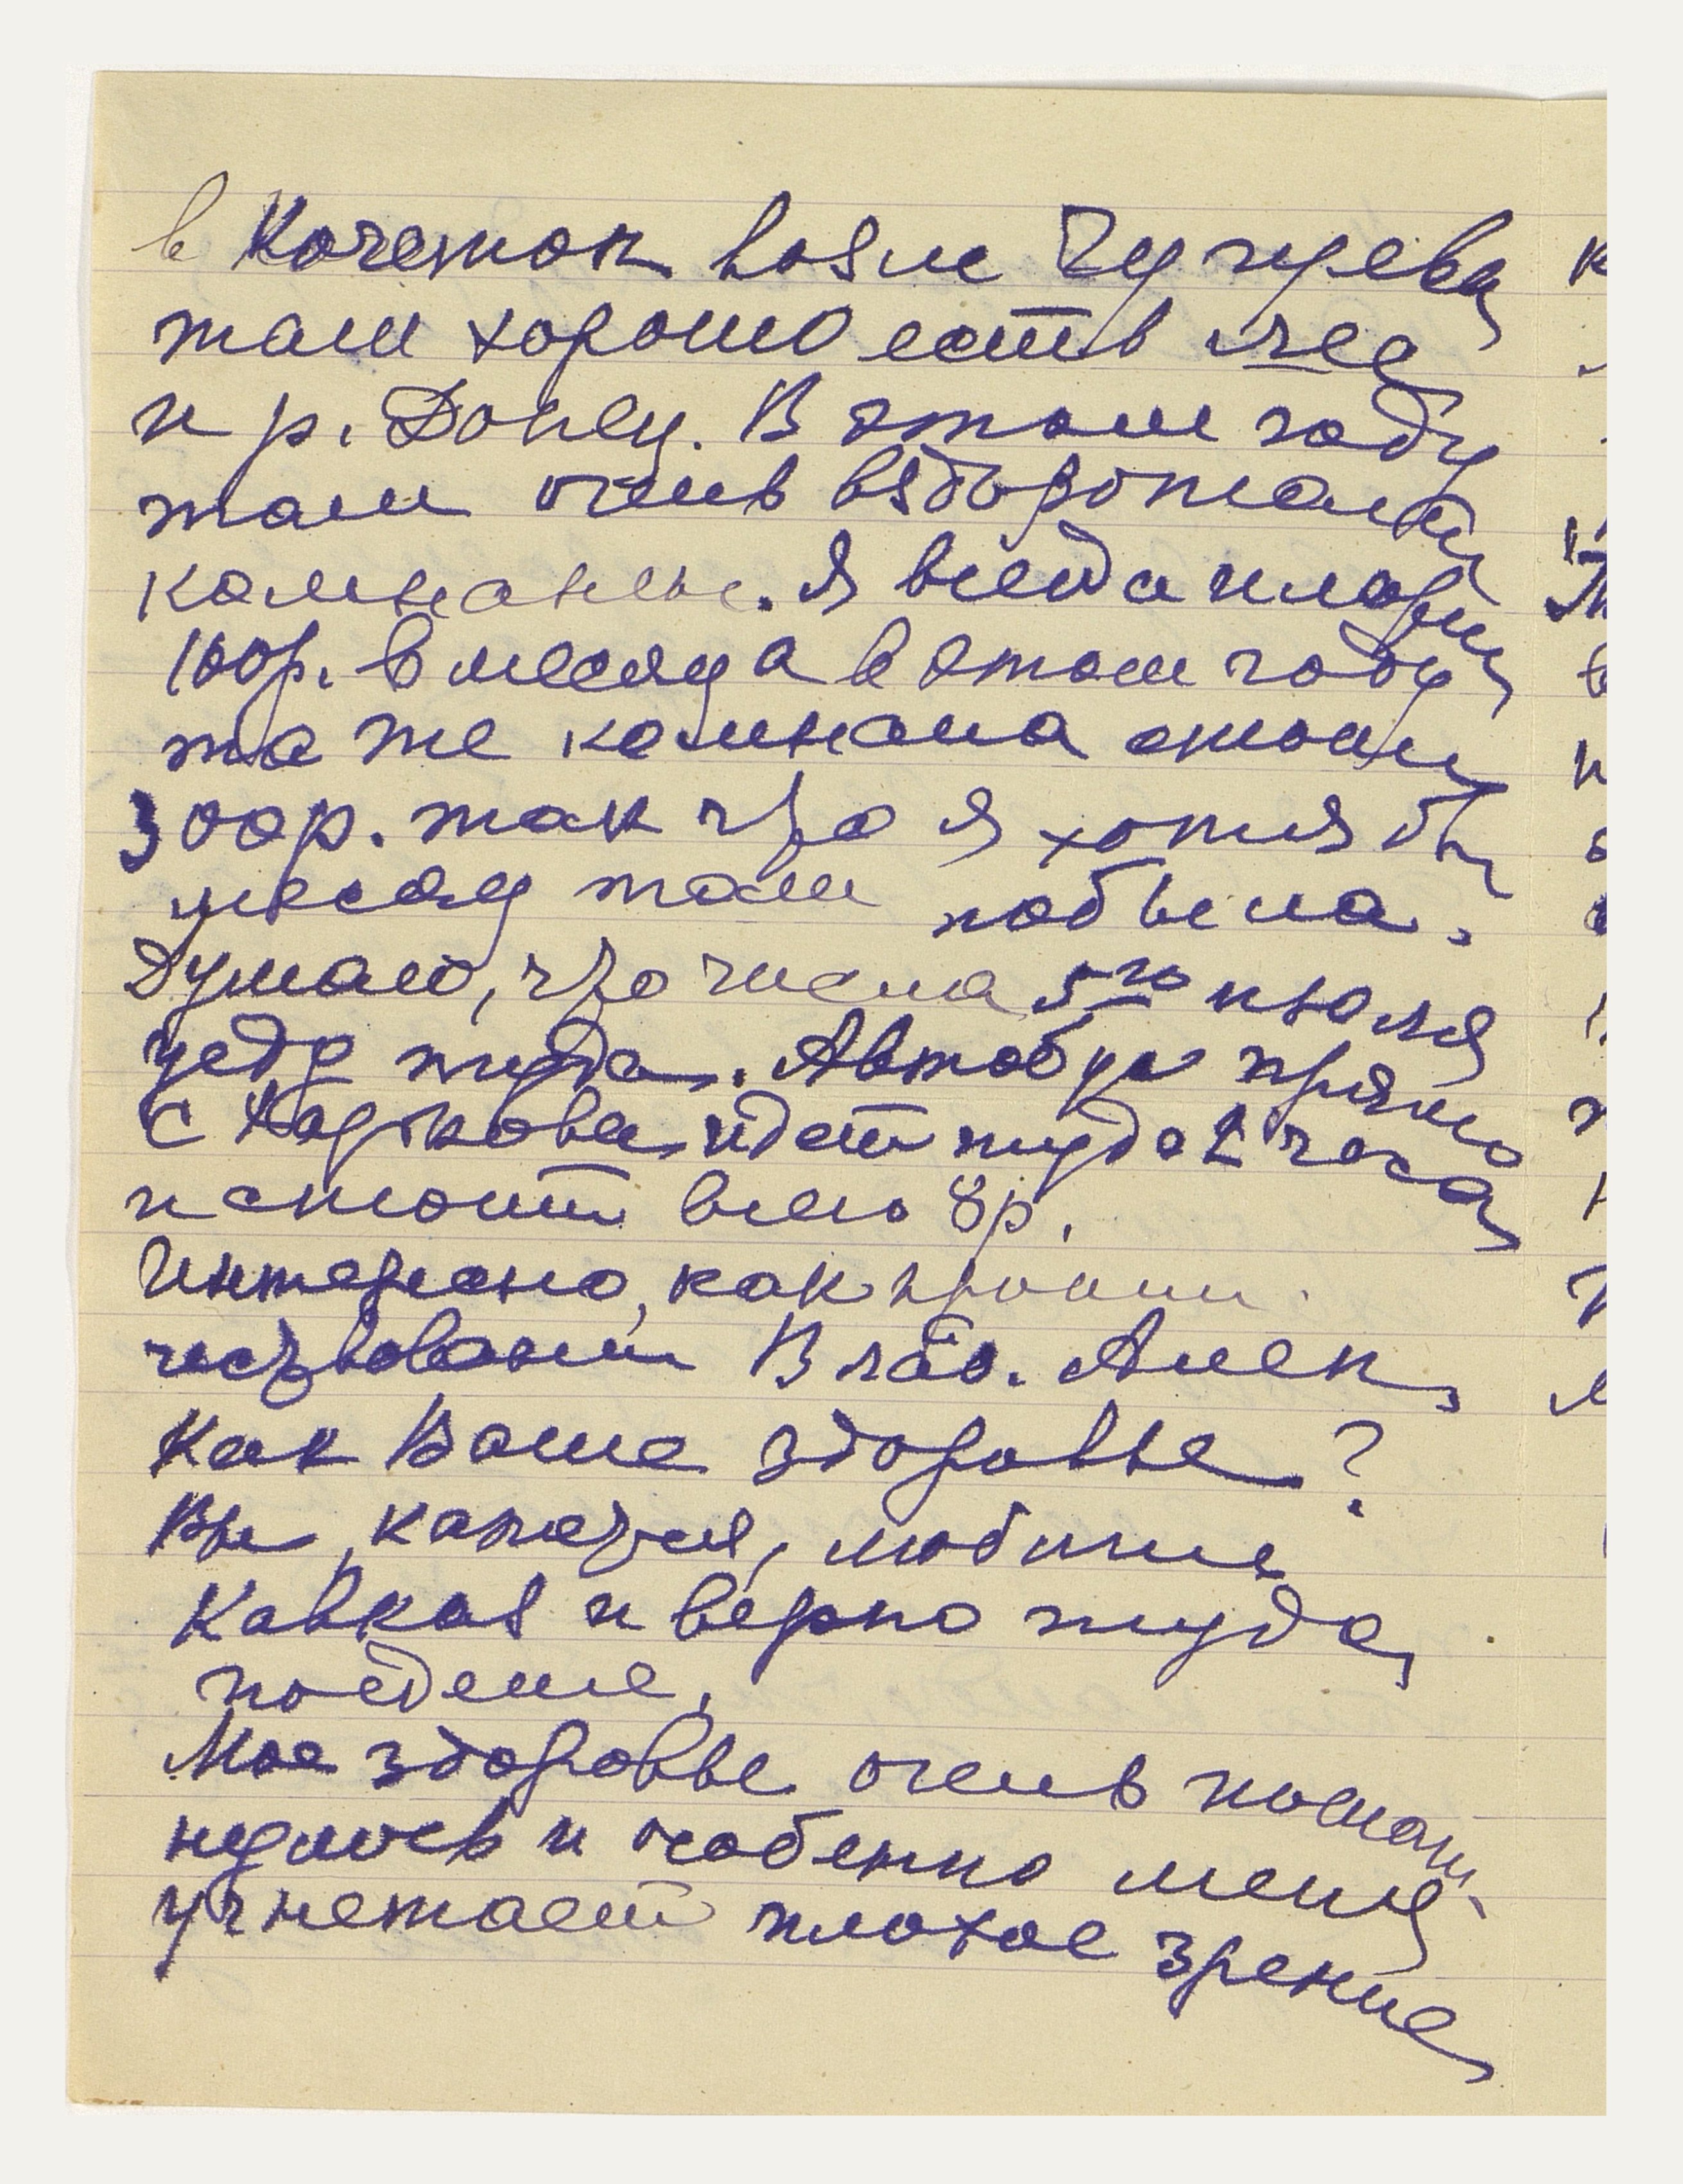 в Кочеток возле Чугуева
там хорошо есть лес
и р. Донец. В этом году
там очень вздорожали
комнаты. Я всегда платила
100р. в месяц а в этом году
та же комната стоит
300р. так что я хотя бы
месяц там побыла.
Думаю, что числа 5го июля
уеду туда. Автобус прямо
с Харькова идет туда 2 часа
и стоит всего 8р.
Интересно, как прошли
чествования Влад. Алек.
Как Ваше здоровье?
Вы, кажется, любите
Кавказ и верно туда
поедете.
Мое здоровье очень пошат-
нулось и особенно меня
угнетает плохое зрение